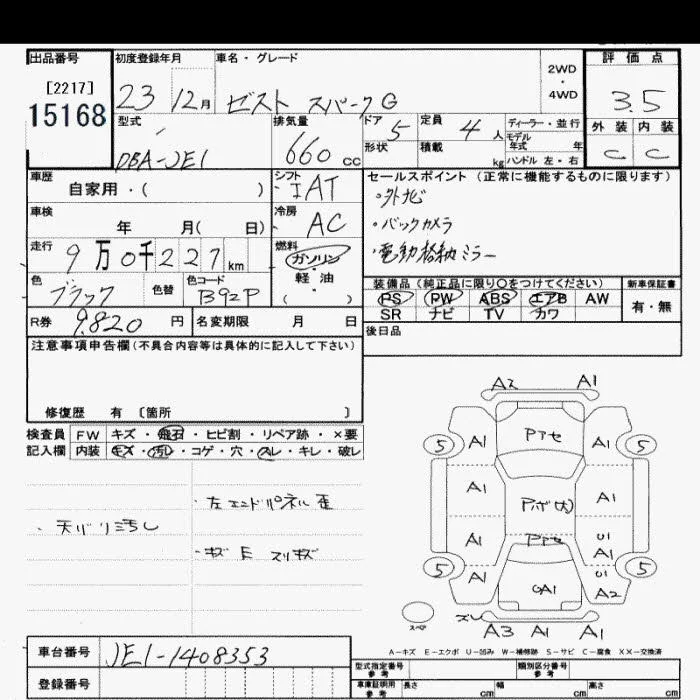 出品番号 初度登録年月 車名・グレード 評価点
[2217] 2WD
15168 23 12月 ゼスト スパークG ・ 3.5
4WD
型式 排気量 ドア 5 定員 4 人 ディーラー・並行 外装 内装
DBA-JE1 660 cc 形状 積載 kg モデル年式 年 C C
ハンドル 左・右
車歴 シフト セールスポイント (正常に機能するものに限ります)
自家用・( ) IAT ・外ナビ
車検 冷房 ・バックカメラ
年 月( 日) AC ・電動格納ミラー
走行 9万0千227km 燃料
ガソリン
軽・油
・( )
色 色替 色コード 装備品(純正品に限り○をつけてください) 新車保証書
ブラック B92P PS PW ABS エアB AW 有・無
SR ナビ TV カワ
R券 9,820 円 名変期限 月 日 後日品
注意事項申告欄(不具合内容等は具体的に記入して下さい)
修復歴 有 〔箇所 〕
検査員 FW キズ・飛石・ヒビ割・リペア跡・×要
記入欄 内装 キズ・汚レ・コゲ・穴・スレ・キレ・破レ
・左エンドパネル歪
・天バリ汚し
・キズ E スリキズ
A2 A1
5 A1 Pアセ A1 5
A1 Pボ(大) A1
A1 Pアセ U1
A1
5 A1 GA1 U1 5
A2
スペア ズレ
A3 A1 A1
A-キズ E-エクボ U-凹み W-補修跡 S-サビ C-腐食 XX-交換済
車台番号 JE1-1408353
登録番号
型式指定番号 参考 類別区分番号 参考
車庫証明用 参考 長さ cm 幅 cm 高さ cm